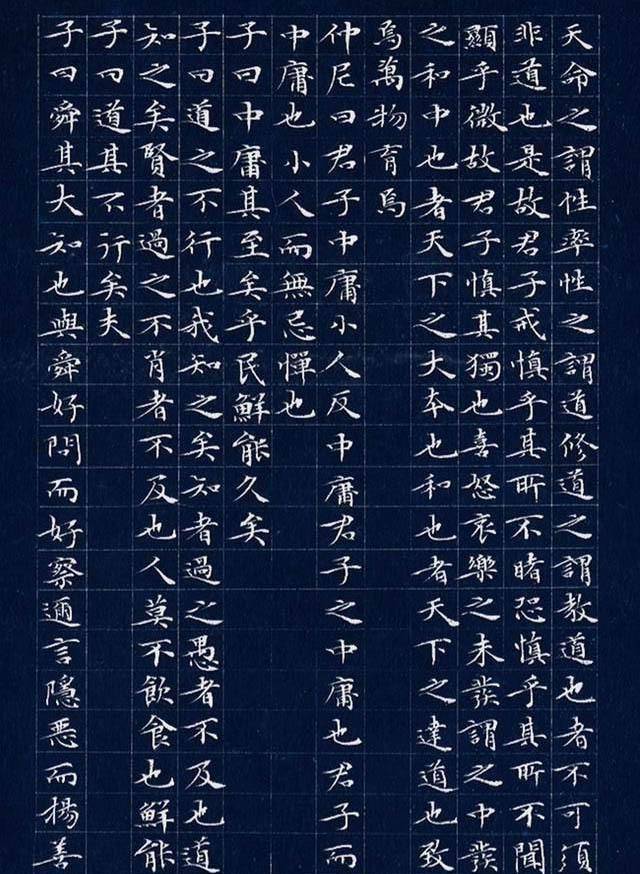 天命之謂性率性之謂道修道之謂教道也者不可須
非道也是故君子戒慎乎其所不睹恐慎乎其所不聞
顯乎微故君子慎其獨也喜怒哀樂之未發謂之中發
之和中也者天下之大本也和也者天下之達道也致
焉萬物育焉
仲尼曰君子中庸小人反中庸君子之中庸也君子而
中庸也小人而無忌憚也
子曰中庸其至矣乎民鮮能久矣
子曰道之不行也我知之矣知者過之愚者不及也道
知之矣賢者過之不肖者不及也人莫不飲食也鮮能
子曰道其不行矣夫
子曰舜其大知也與舜好問而好察邇言隱惡而揚善